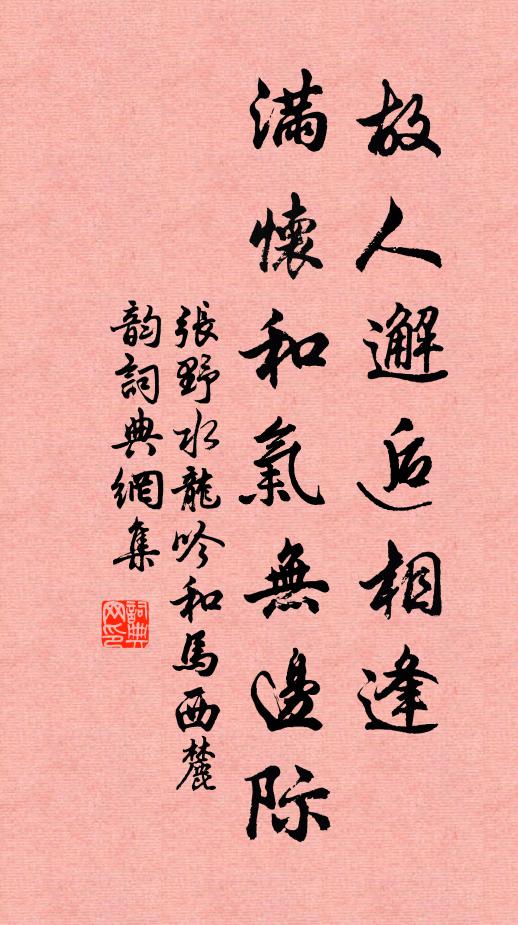 故人邂逅相逢
满懷和氣無邊际
張野水龍吟和馬西麓
韵詞典網集
詞典网印